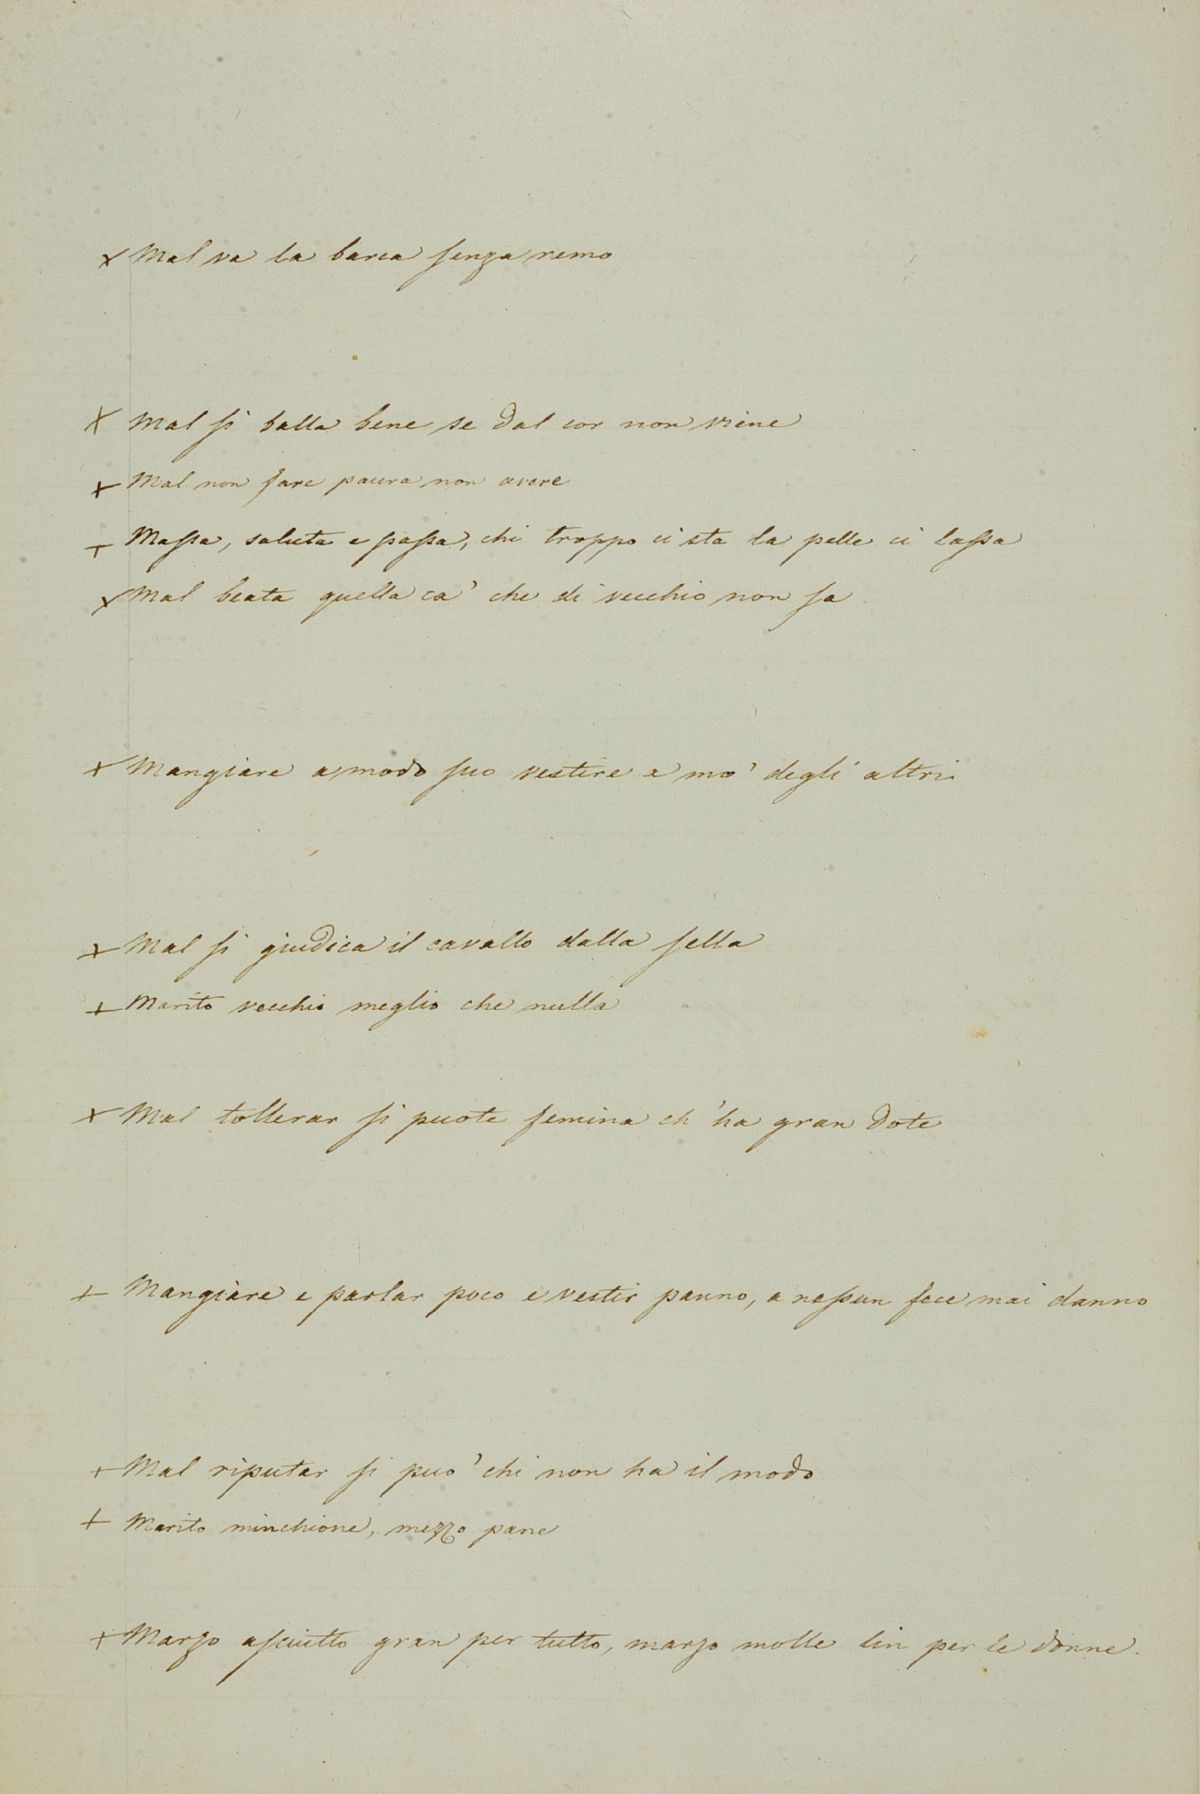 x Mal va la barca senza remo
x Mal si balla bene se dal cor non viene
+ Mal non fare paura non avere
+ Massa, saluta e passa, chi troppo ci sta la pelle ci lassa
x Mal beata quella ca' che di vecchio non sa
x Mangiare a modo suo vestire a mo' degli altri
+ Mal si giudica il cavallo dalla sella
+ Marito vecchio meglio che nulla
x Mal tollerar si puote femina ch'ha gran dote
+ Mangiare e parlar poco e vestir panno, a nessun fece mai danno
+ Mal riputar si puo' chi non ha il modo
+ Marito minchione, mezzo pane
+ Marzo asciutto gran per tutto, marzo molle lin per le donne.